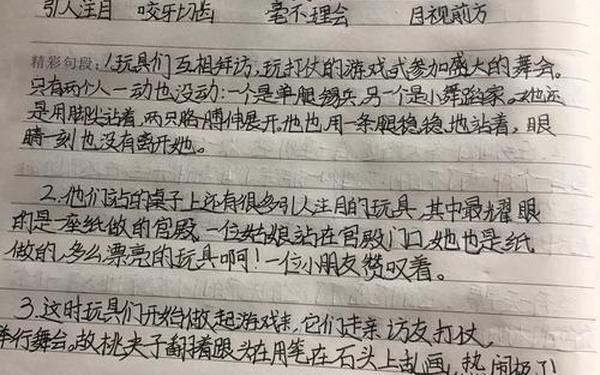 引人注目 咬牙切齿 毫不理会 目视前方
精彩句段:1.玩具们互相拜访,玩打仗的游戏或参加盛大的舞会。
只有两个人一动也没动:一个是单腿锡兵,另一个是小舞蹈家。她还
是用脚尖站着,两只胳膊伸展开。他也用一条腿稳稳地站着,眼
睛一刻也没有离开她。
2.他们站的桌子上还有很多引人注目的玩具,其中最耀眼
的是一座纸做的宫殿,一位姑娘站在宫殿门口,她也是纸
做的,多么漂亮的玩具啊!一位小朋友赞叹着。
3.这时玩具们开始做起游戏来,它们走亲访友打仗,
举行舞会。故桃夹子翻着跟头在用笔在石头上乱画,热闹极了!